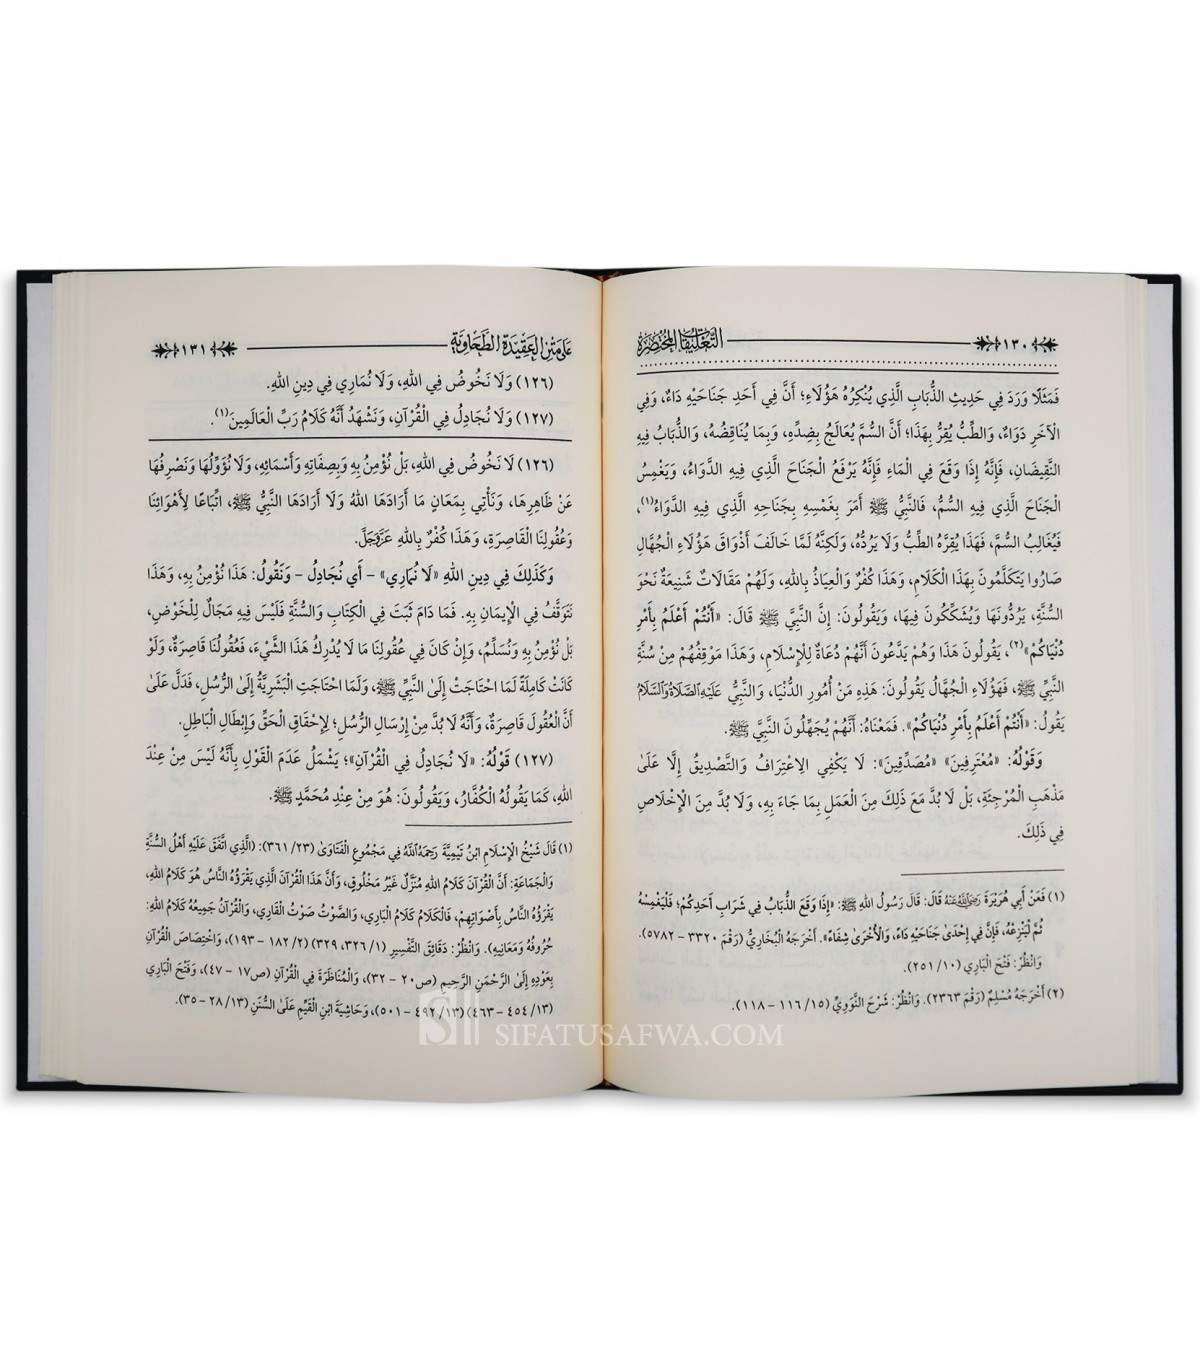 ١٣٠ التَّعْلِيقَاتُ المُخْتَصَرَةُ
فَمَثَلًا وَرَدَ فِي حَدِيثِ الذُّبَابِ الَّذِي يُنْكِرُهُ هَؤُلَاءِ؛ أَنَّ فِي أَحَدِ جَنَاحَيْهِ دَاءٌ، وَفِي
الْآخَرِ دَوَاءٌ، وَالطِّبُّ يُقِرُّ بِهَذَا؛ أَنَّ السُّمَّ يُعَالَجُ بِضِدِّهِ، وَبِمَا يُنَاقِضُهُ، وَالذُّبَابُ فِيهِ
النَّقِيضَانِ، فَإِنَّهُ إِذَا وَقَعَ فِي الْمَاءِ فَإِنَّهُ يَرْفَعُ الْجَنَاحَ الَّذِي فِيهِ الدَّوَاءُ، وَيَغْمِسُ
الْجَنَاحَ الَّذِي فِيهِ السُّمُّ، فَالنَّبِيُّ ﷺ أَمَرَ بِغَمْسِهِ بِجَنَاحِهِ الَّذِي فِيهِ الدَّوَاءُ(١)،
فَيُغَالِبُ السُّمَّ، فَهَذَا يُقِرُّهُ الطِّبُّ وَلَا يَرُدُّهُ، وَلَكِنَّهُ لَمَّا خَالَفَ أَذْوَاقَ هَؤُلَاءِ الْجُهَّالِ
صَارُوا يَتَكَلَّمُونَ بِهَذَا الْكَلَامِ، وَهَذَا كُفْرٌ وَالْعِيَاذُ بِاللهِ، وَلَهُمْ مَقَالَاتٌ شَنِيعَةٌ نَحْوَ
السُّنَّةِ، يَرُدُّونَهَا وَيُشَكِّكُونَ فِيهَا، وَيَقُولُونَ: إِنَّ النَّبِيَّ ﷺ قَالَ: «أَنْتُمْ أَعْلَمُ بِأَمْرِ
دُنْيَاكُمْ»(٢)، يَقُولُونَ هَذَا وَهُمْ يَدَّعُونَ أَنَّهُمْ دُعَاةٌ لِلْإِسْلَامِ، وَهَذَا مَوْقِفُهُمْ مِنْ سُنَّةِ
النَّبِيِّ ﷺ، فَهَؤُلَاءِ الْجُهَّالُ يَقُولُونَ: هَذِهِ مَنْ أُمُورِ الدُّنْيَا، وَالنَّبِيُّ عَلَيْهِ الصَّلَاةُ وَالسَّلَامُ
يَقُولُ: «أَنْتُمْ أَعْلَمُ بِأَمْرِ دُنْيَاكُمْ». فَمَعْنَاهُ: أَنَّهُمْ يُجَهِّلُونَ النَّبِيَّ ﷺ.
وَقَوْلُهُ: «مُعْتَرِفِينَ» «مُصَدِّقِينَ»: لَا يَكْفِي الِاعْتِرَافُ وَالتَّصْدِيقُ إِلَّا عَلَىٰ
مَذْهَبِ الْمُرْجِئَةِ، بَلْ لَا بُدَّ مَعَ ذَلِكَ مِنَ الْعَمَلِ بِمَا جَاءَ بِهِ، وَلَا بُدَّ مِنَ الْإِخْلَاصِ
فِي ذَلِكَ.
(١) فَعَنْ أَبِي هُرَيْرَةَ رَضِيَ اللهُ عَنْهُ قَالَ: قَالَ رَسُولُ اللهِ ﷺ: «إِذَا وَقَعَ الذُّبَابُ فِي شَرَابِ أَحَدِكُمْ؛ فَلْيَغْمِسْهُ
ثُمَّ لْيَنْزِعْهُ، فَإِنَّ فِي إِحْدَى جَنَاحَيْهِ دَاءً، وَالْأُخْرَى شِفَاءً». أَخْرَجَهُ الْبُخَارِيُّ (رَقْمَ ٣٣٢٠ – ٥٧٨٢).
وَانْظُرْ: فَتْحَ الْبَارِي (١٠/ ٢٥١).
(٢) أَخْرَجَهُ مُسْلِمٌ (رَقْمَ ٢٣٦٣). وَانْظُرْ: شَرْحَ النَّوَوِيِّ (١٥/ ١١٦ – ١١٨).
عَلَى مَتْنِ العَقِيدَةِ الطَّحَاوِيَّةِ ١٣١
(١٢٦) وَلَا نَخُوضُ فِي اللهِ، وَلَا نُمَارِي فِي دِينِ اللهِ.
(١٢٧) وَلَا نُجَادِلُ فِي الْقُرْآنِ، وَنَشْهَدُ أَنَّهُ كَلَامُ رَبِّ الْعَالَمِينَ(١).
(١٢٦) لَا نَخُوضُ فِي اللهِ، بَلْ نُؤْمِنُ بِهِ وَبِصِفَاتِهِ وَأَسْمَائِهِ، وَلَا نُؤَوِّلُهَا وَنَصْرِفُهَا
عَنْ ظَاهِرِهَا، وَنَأْتِي بِمَعَانٍ مَا أَرَادَهَا اللهُ وَلَا أَرَادَهَا النَّبِيُّ ﷺ، اتِّبَاعًا لِأَهْوَائِنَا
وَعُقُولِنَا الْقَاصِرَةِ، وَهَذَا كُفْرٌ بِاللهِ عَزَّ وَجَلَّ.
وَكَذَلِكَ فِي دِينِ اللهِ «لَا نُمَارِي» – أَي نُجَادِلُ – وَنَقُولُ: هَذَا نُؤْمِنُ بِهِ، وَهَذَا
نَتَوَقَّفُ فِي الْإِيمَانِ بِهِ. فَمَا دَامَ ثَبَتَ فِي الْكِتَابِ وَالسُّنَّةِ فَلَيْسَ فِيهِ مَجَالٌ لِلْخَوْضِ،
بَلْ نُؤْمِنُ بِهِ وَنُسَلِّمُ، وَإِنْ كَانَ فِي عُقُولِنَا مَا لَا يُدْرِكُ هَذَا الشَّيْءَ، فَعُقُولُنَا قَاصِرَةٌ، وَلَوْ
كَانَتْ كَامِلَةً لَمَا احْتَاجَتْ إِلَىٰ النَّبِيِّ ﷺ، وَلَمَا احْتَاجَتِ الْبَشَرِيَّةُ إِلَىٰ الرُّسُلِ، فَدَلَّ عَلَىٰ
أَنَّ الْعُقُولَ قَاصِرَةٌ، وَأَنَّهُ لَا بُدَّ مِنْ إِرْسَالِ الرُّسُلِ؛ لِإِحْقَاقِ الْحَقِّ وَإِبْطَالِ الْبَاطِلِ.
(١٢٧) قَوْلُهُ: «لَا نُجَادِلُ فِي الْقُرْآنِ»؛ يَشْمَلُ عَدَمَ الْقَوْلِ بِأَنَّهُ لَيْسَ مِنْ عِنْدَ
اللهِ، كَمَا يَقُولُهُ الْكُفَّارُ، وَيَقُولُونَ: هُوَ مِنْ عِنْدِ مُحَمَّدٍ ﷺ.
(١) قَالَ شَيْخُ الْإِسْلَامِ ابْنُ تَيْمِيَّةَ رَحِمَهُ اللهُ فِي مَجْمُوعِ الْفَتَاوَىٰ (٢٣/ ٣٦١): (الَّذِي اتَّفَقَ عَلَيْهِ أَهْلُ السُّنَّةِ
وَالْجَمَاعَةِ: أَنَّ الْقُرْآنَ كَلَامُ اللهِ مُنَزَّلٌ غَيْرُ مَخْلُوقٍ، وَأَنَّ هَذَا الْقُرْآنَ الَّذِي يَقْرَؤُهُ النَّاسُ هُوَ كَلَامُ اللهِ،
يَقْرَؤُهُ النَّاسُ بِأَصْوَاتِهِمْ، فَالْكَلَامُ كَلَامُ الْبَارِي، وَالصَّوْتُ صَوْتُ الْقَارِي، وَالْقُرْآنُ جَمِيعُهُ كَلَامُ اللهِ:
حُرُوفُهُ وَمَعَانِيهِ). وَانْظُرْ: دَقَائِقَ التَّفْسِيرِ (١/ ٣٢٦، ٣٢٩) (٢/ ١٨٢ – ١٩٣)، وَاخْتِصَاصَ الْقُرْآنِ
بِعَوْدِهِ إِلَىٰ الرَّحْمَنِ الرَّحِيمِ (ص٢٠ – ٣٢)، وَالْمُنَاظَرَةَ فِي الْقُرْآنِ (ص١٧ – ٤٧)، وَفَتْحَ الْبَارِي
(١٣/ ٤٥٤ – ٤٦٣) (١٣/ ٤٩٢ – ٥٠١)، وَحَاشِيَةَ ابْنِ الْقَيِّمِ عَلَىٰ السُّنَنِ (١٣/ ٢٨ – ٣٥).
SIFATUSAFWA.COM